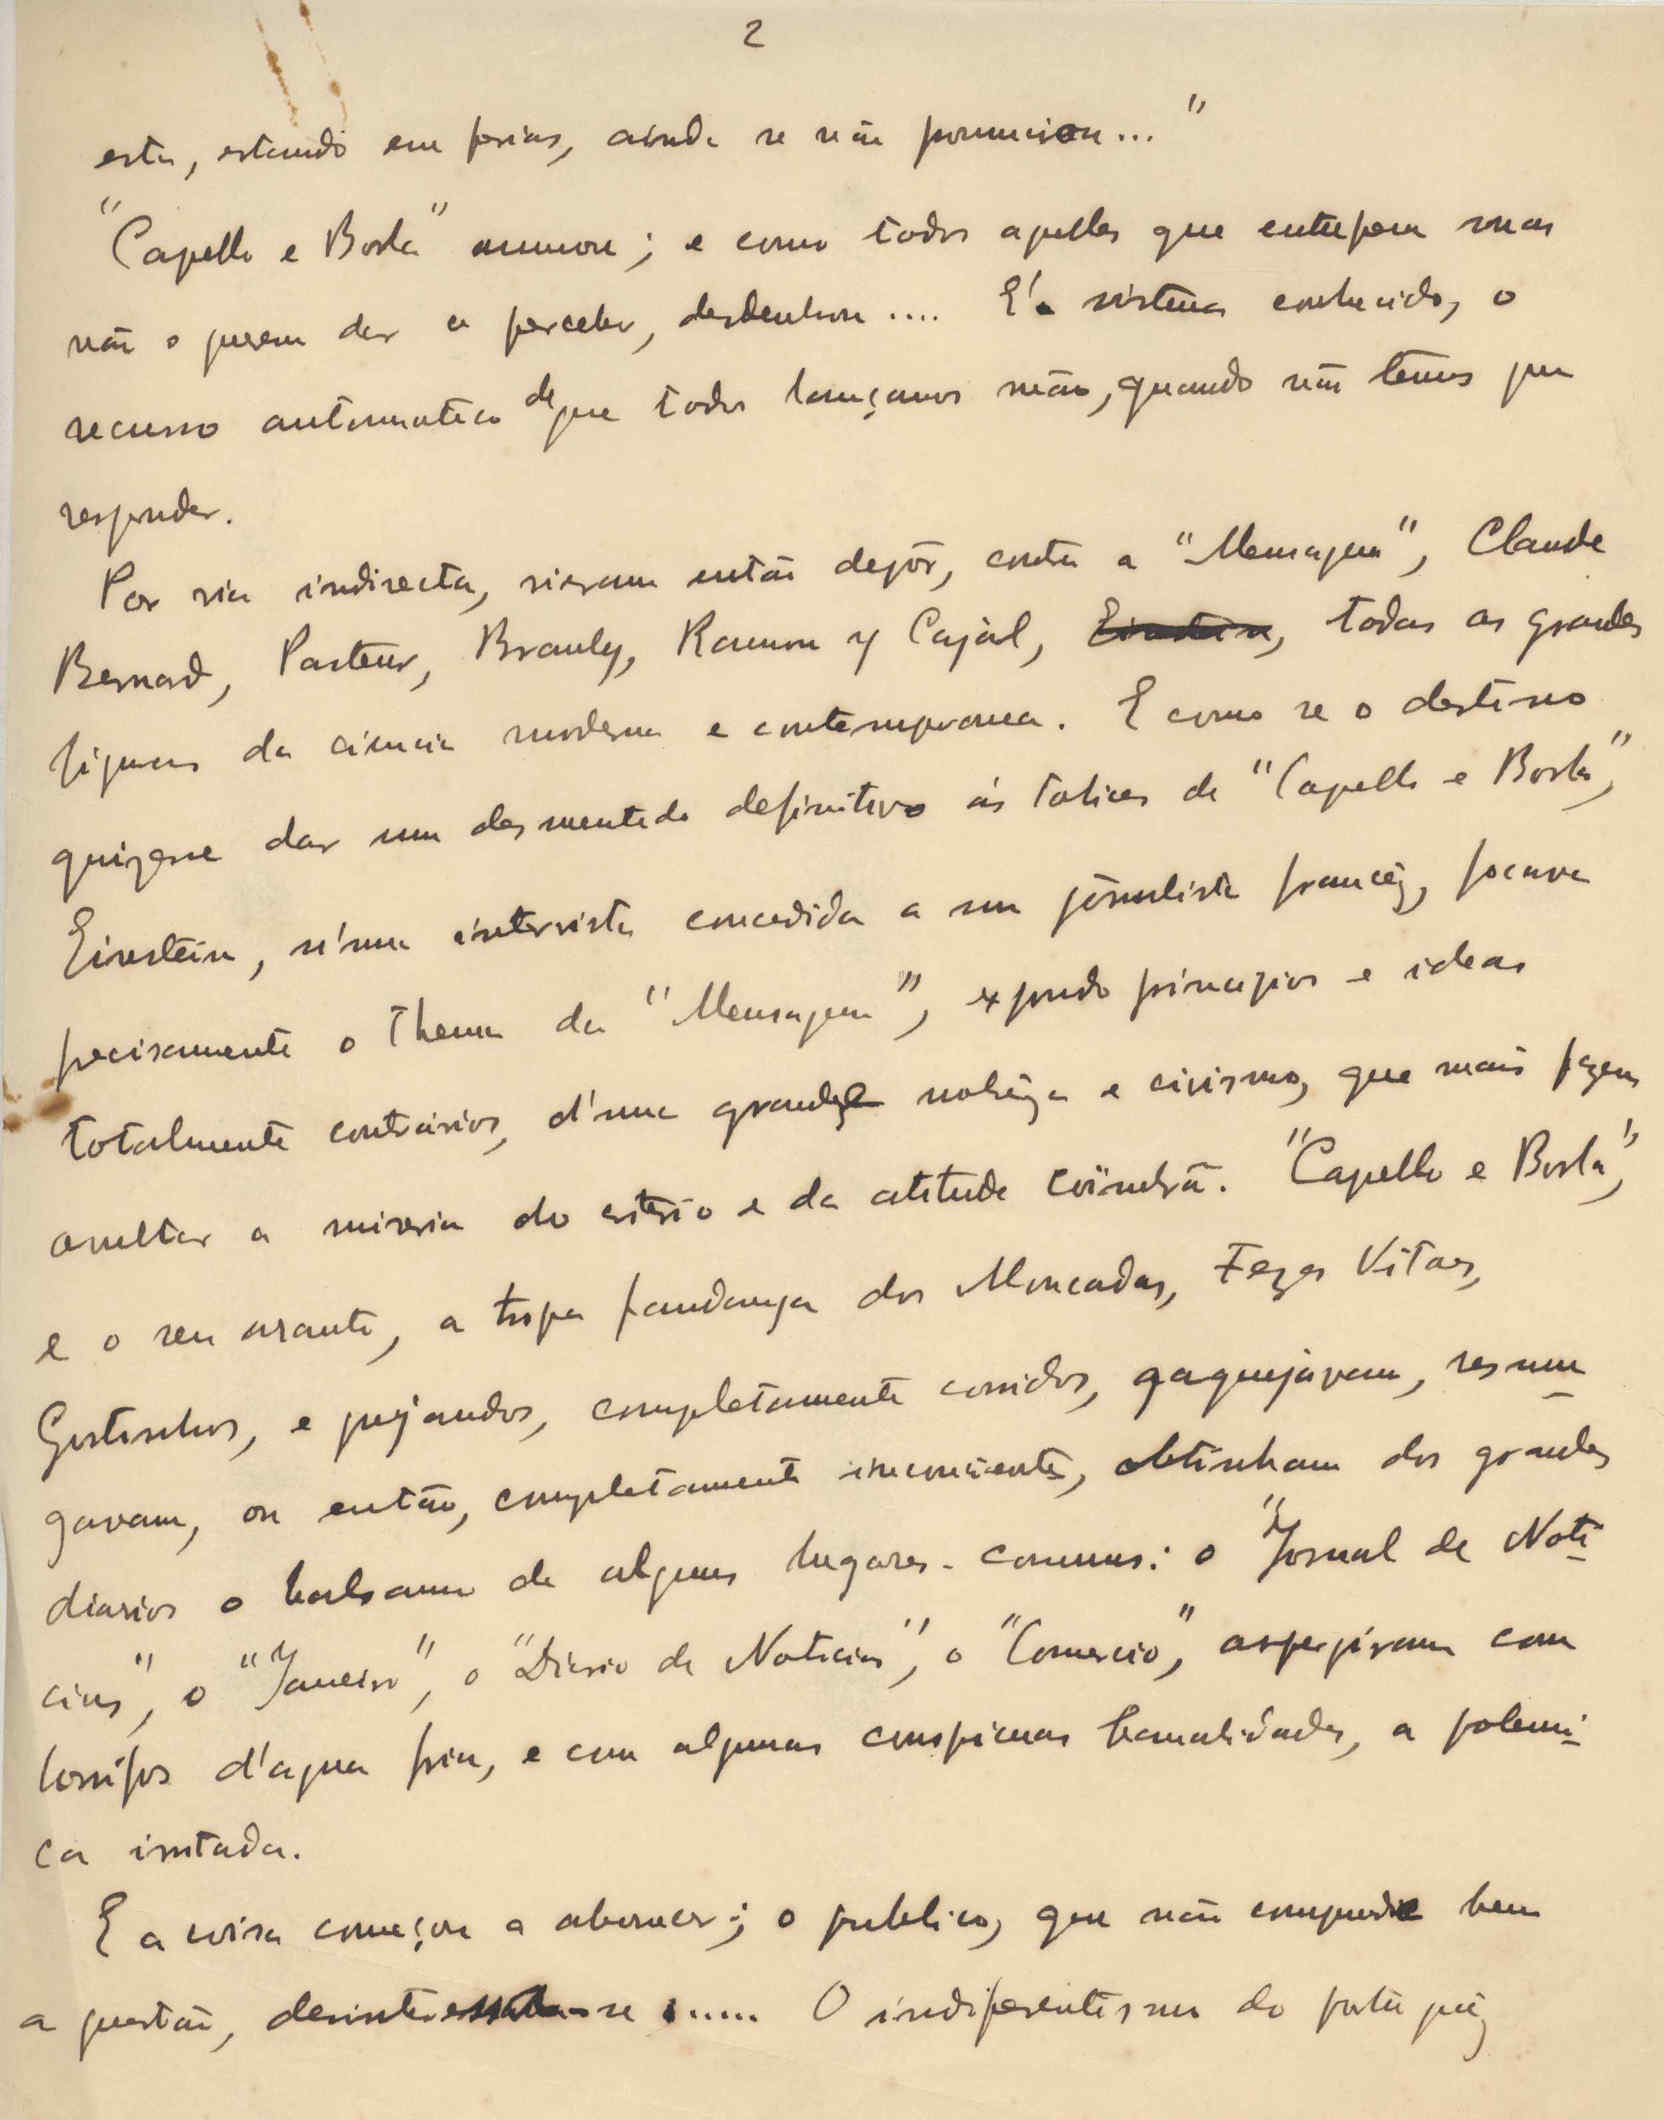 2
esta, estando em ferias, ainda se não pronunciou..."
"Capello e Borla" amuou; e como todos aquelles que entupem mas
não o querem dar a perceber, desdenhou.... E' sistema conhecido, o
recurso automatico de que todos lançamos mão, quando não temos que
responder.
Por via indirecta, vieram então depôr, contra a "Mensagem", Claude
Bernard, Pasteur, Branly, Ramon y Cajal, Einstein, todas as grandes
figuras da ciencia moderna e contemporanea. E como se o destino
quizesse dar um desmentido definitivo ás tolices de "Capello e Borla",
Einstein, n'uma intervista concedida a um jornalista francêz, focava
precisamente o thema da "Mensagem", expondo principios e ideas
totalmente contrarios, d'uma grande nobreza e civismo, que mais fazem
avultar a miseria do criterio e da atitude coimbrã. "Capello e Borla",
e o seu arauto, a tropa fandanga dos Moncadas, Fezas Vitaes,
Gostinhos, e quejandos, completamente corridos, gaguejavam, resmun
gavam, ou então, completamente inconscientes, obtinham dos grandes
diarios o balsamo de alguns lugares-comuns: o "Jornal de Noti
cias", o "Janeiro", o "Diario de Noticias", o "Comercio", aspergiram com
borrifos d'agua fria, e com algumas conspicuas banalidades, a polemi
ca irritada.
E a coisa começou a aborrecer; o publico, que não compreende bem
a questão, desinteressou-se..... O indiferentismo do portuguêz